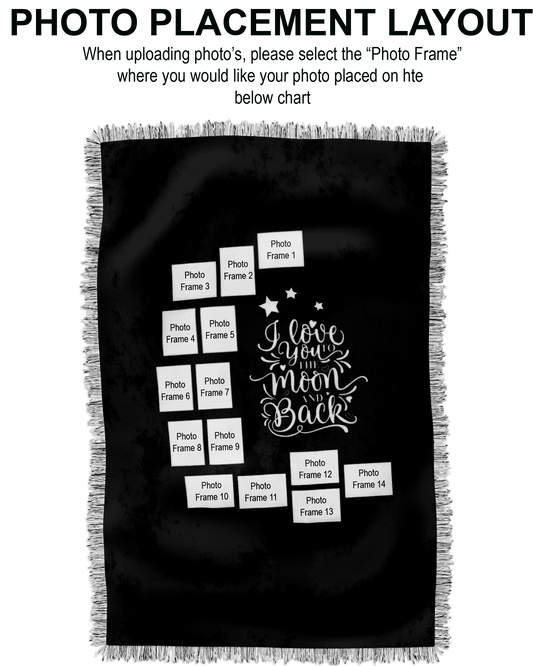 PHOTO PLACEMENT LAYOUT
When uploading photo's, please select the “Photo Frame”
where you would like your photo placed on hte
below chart
Photo
Frame 1
Photo
Frame 2
Photo
Frame 3
Photo
Frame 4
Photo
Frame 5
I love
You TO
THE
Moon
AND
Back
Photo
Frame 6
Photo
Frame 7
Photo
Frame 8
Photo
Frame 9
Photo
Frame 10
Photo
Frame 11
Photo
Frame 12
Photo
Frame 13
Photo
Frame 14